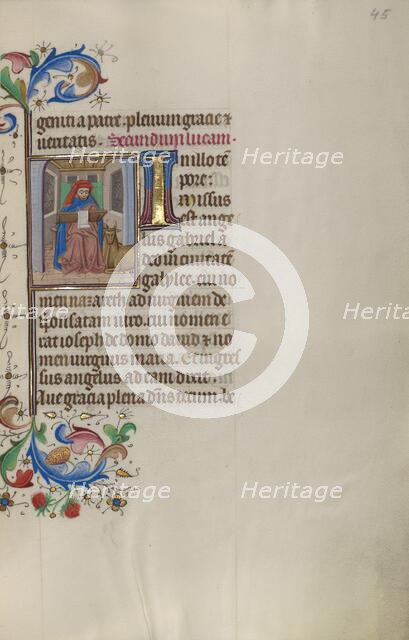 45
geniti a patre. plenum gracie &
veritatis. Secundum lucam.
In illo tē
pore:
Missus
est ange
lus gabriel a
deo in civitatē
galylee. cui no
men nazareth. ad virginem de
sponsatam viro. cui nomen e
rat ioseph de domo david. & no
men virginis maria. Et ingres
sus angelus ad eam dixit.
Ave gracia plena dn̄s tecum. be
Heritage
Heritage
Heritage
Heritage
Heritage
Heritage
Heritage